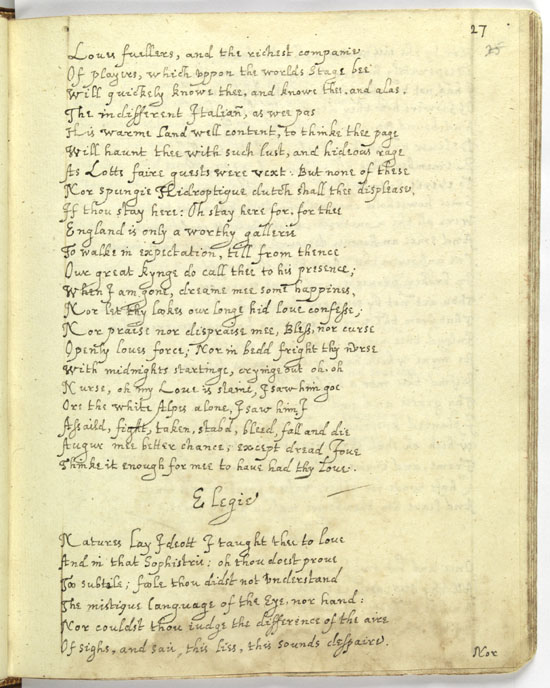 27
25
Loues fuellers, and the richest companie
Of players, which vppon the worlds stage bee
Will quickely knowe thee, and knowe thee, and alas.
The indifferent Italian, as wee pas
His warme Land well content, to thinke thee page
Will haunt thee with such lust, and hideous rage
As Lotts faire guests were vext: But none of these
Nor spungie Hidroptique dutch shall thee displease.
If thou stay here: Oh stay here for, for thee
England is only a worthy gallerie
To walke in expectation, till from thence
Our great kynge do call thee to his presence;
When I am gone, dreame mee some happines,
Nor let thy lookes our longe hid love confesse;
Nor praise nor dispraise mee, Bless, nor curse
Openly loues force; Nor in bedd fright thy nurse
With midnights startings, cryinge out oh, oh
Nurse, oh my Loue is slaine, I saw him goe
Ore the white Alpes alone, I saw him I
Assaild, fight, taken, stabd, bleed, fall and die
Augur mee better chance; except dread Joue
Thinke it enough for mee to haue had thy Loue.
Elegie
Natures lay Ideott I taught thee to loue
And in that Sophistrie; oh thou doest proue
Too subtile; foole thou didst not vnderstand
The mistique language of the Eye, nor hand:
Nor couldst thou iudge the difference of the aire
Of sighs, and say, this lies, this sounds despaire.
Nor